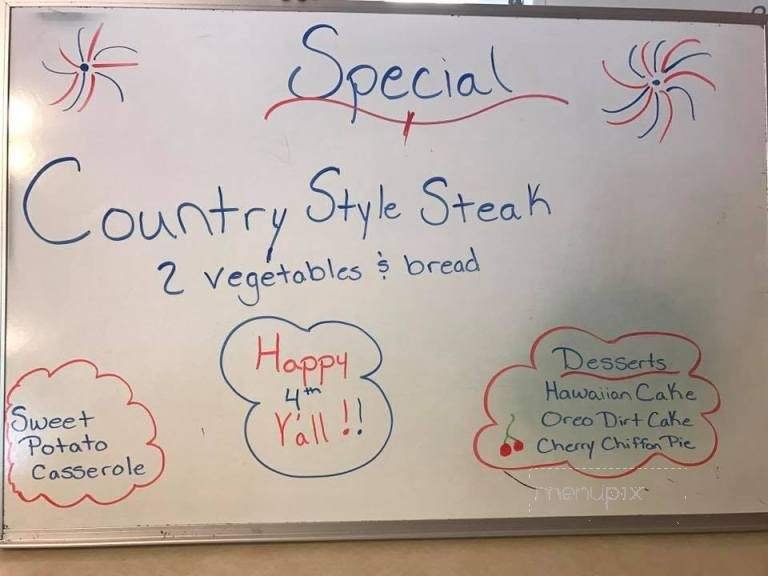 Special
Country Style Steak
2 vegetables & bread
Sweet
Potato
Casserole
Happy
4th
Y'all !!
Desserts
Hawaiian Cake
Oreo Dirt Cake
Cherry Chiffon Pie
menupix